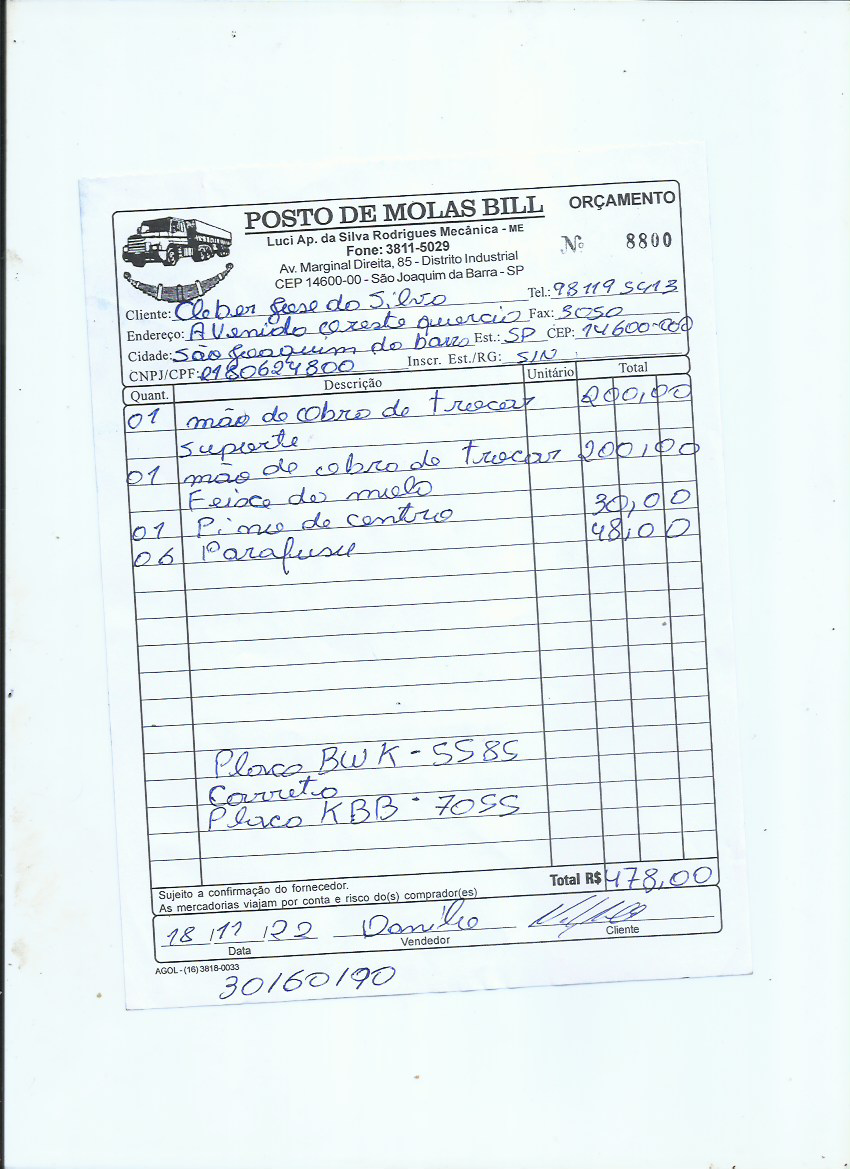 POSTO DE MOLAS BILL
ORÇAMENTO
Luci Ap. da Silva Rodrigues Mecânica - ME
Fone: 3811-5029
Nº 8800
Av. Marginal Direita, 85 - Distrito Industrial
CEP 14600-00 - São Joaquim da Barra - SP
Cliente: Cleber Jose da Silva Tel.: 98119 5413
Endereço: Avenida Oreste quercio Fax: 3050
Cidade: São Joaquim da barra Est.: SP CEP: 14600-000
CNPJ/CPF: 2180624800 Inscr. Est./RG: S/N
Quant. Descrição Unitário Total
01 mão de obra de trocar 200,00
suporte
01 mão de obra de trocar 200,00
Feixe de
01 Pino de centro 30,00
06 Parafuso 48,00
Placa BWK - 5585
Carreta
Placa KBB - 7055
Sujeito a confirmação do fornecedor.
Total R$ 478,00
As mercadorias viajam por conta e risco do(s) comprador(es)
18 /11 /22 Danilo
Data Vendedor Cliente
AGOL - (16) 3818-0033
30/60/90